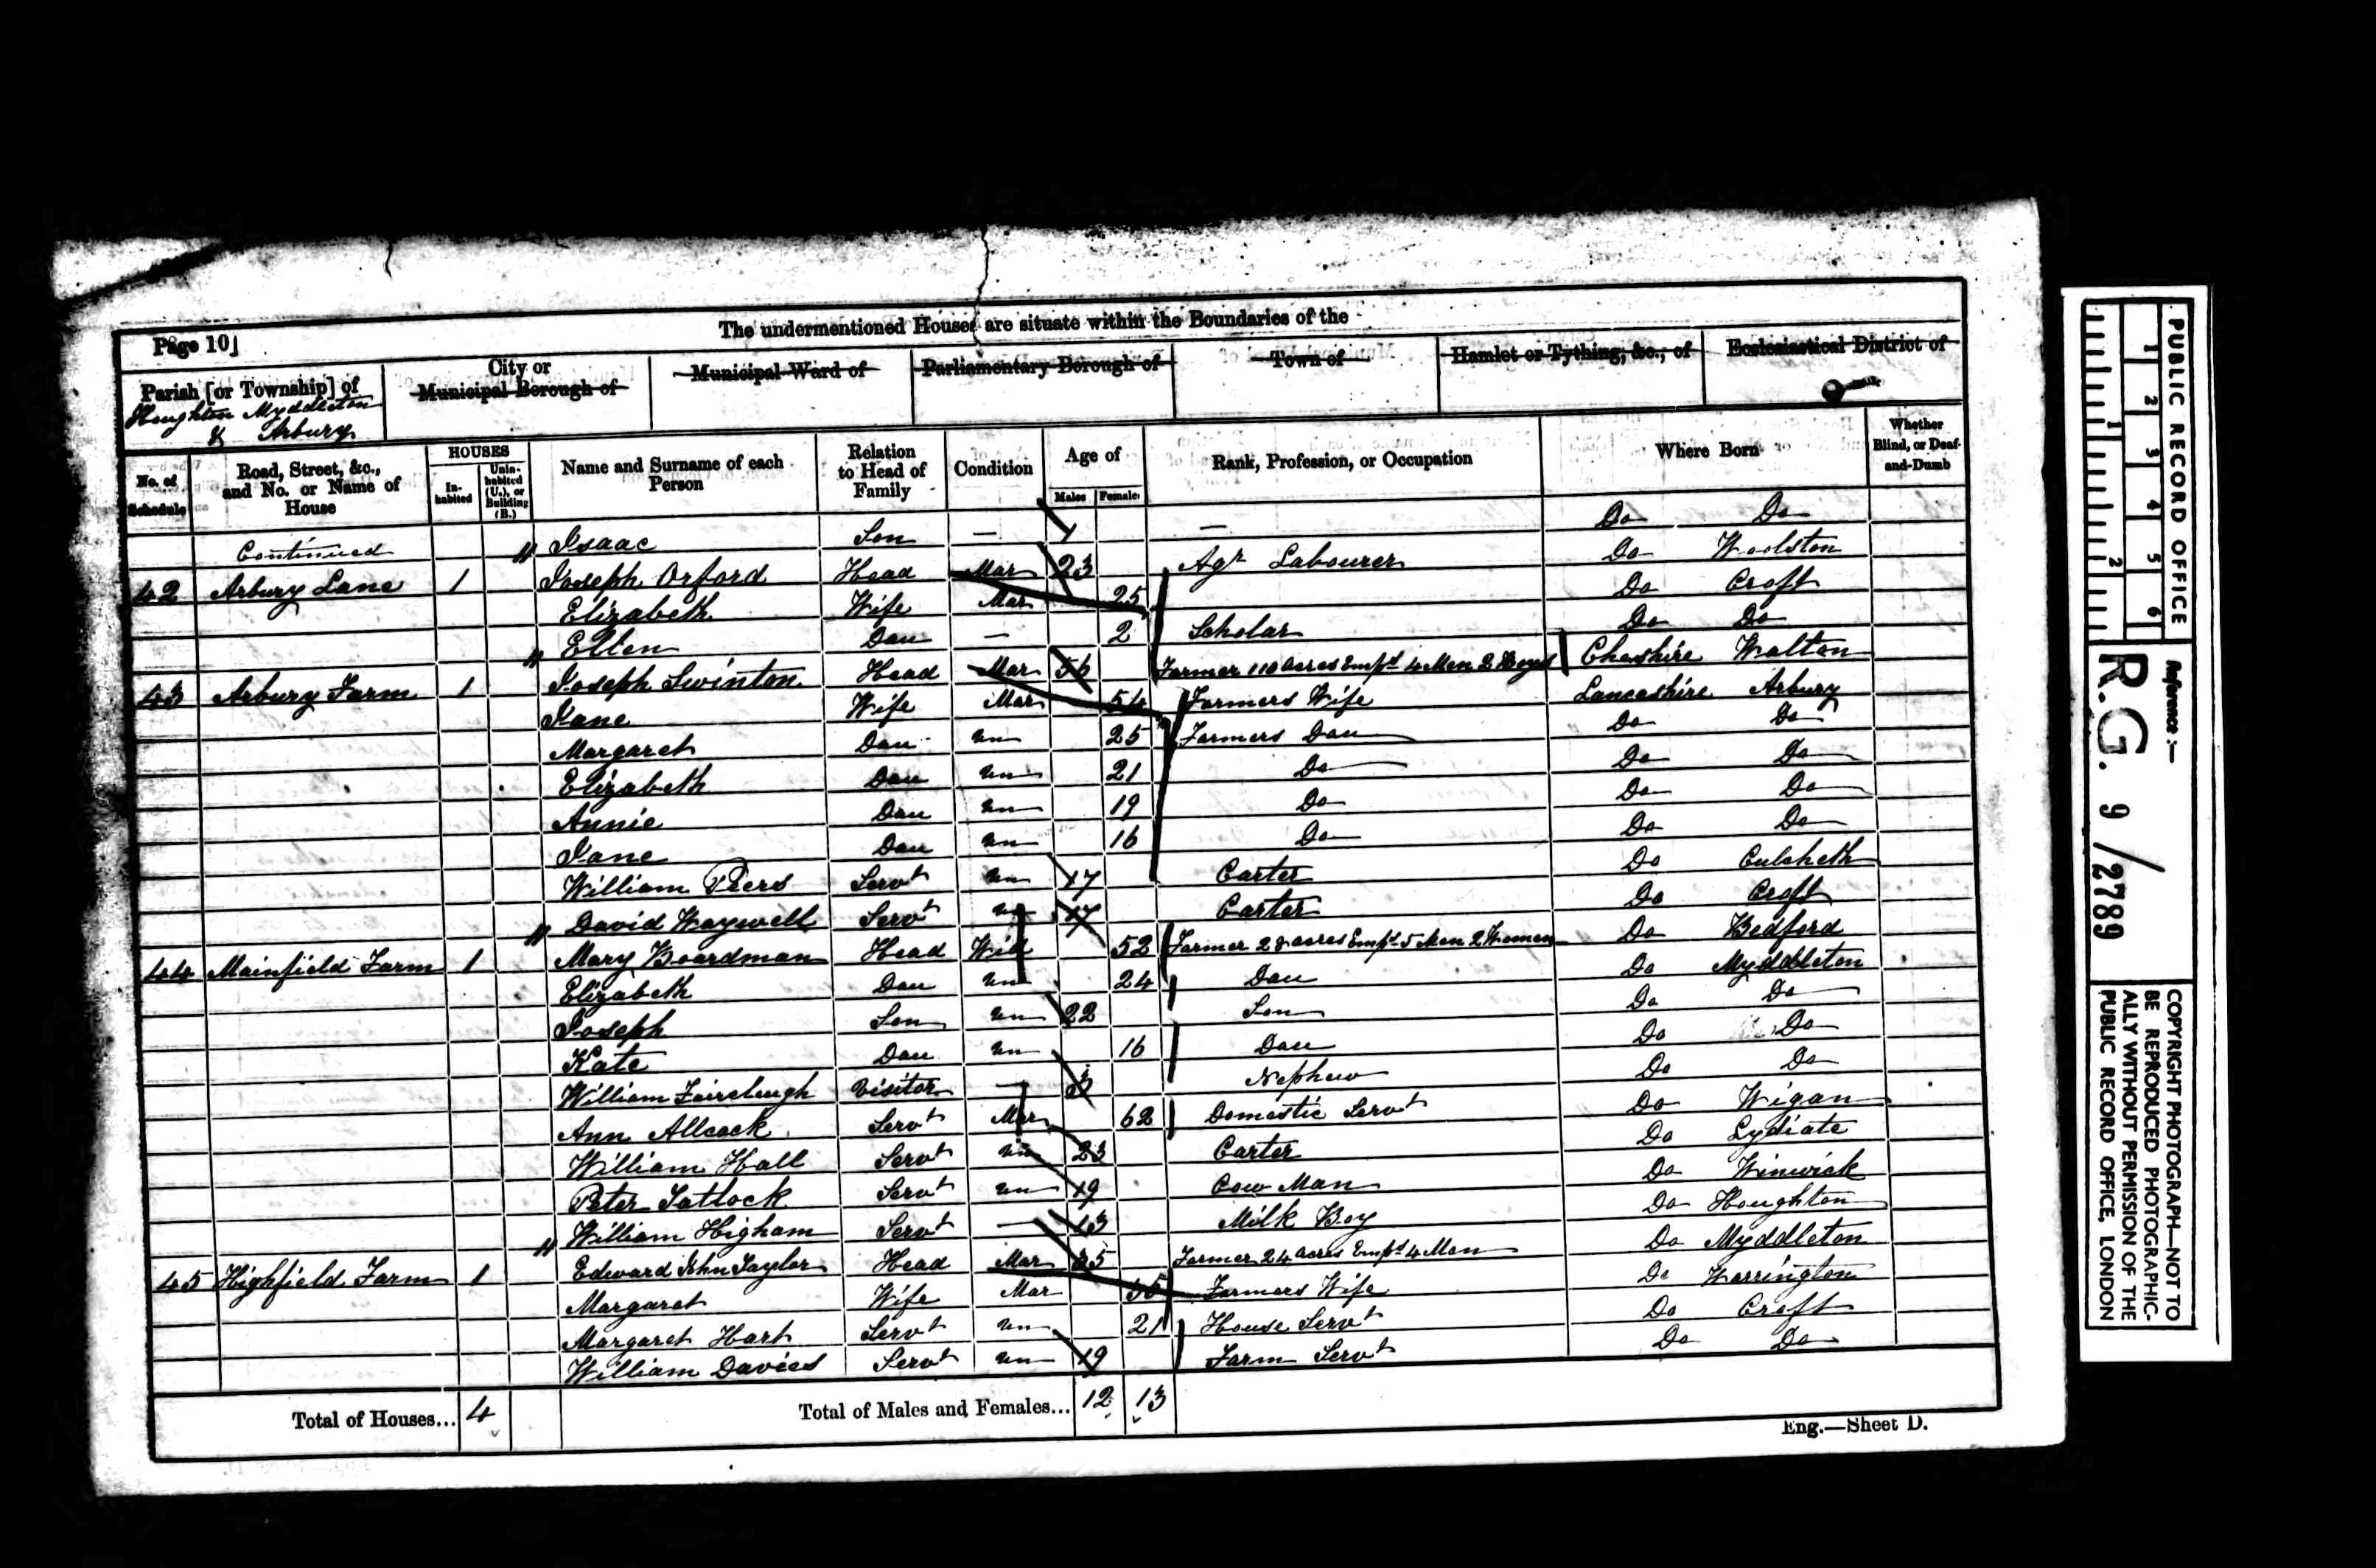 The undermentioned Houses are situate within the Boundaries of the
Page 10]
Parish [or Township] of
Houghton Myddleton
& Arbury
City or
Municipal Borough of
Municipal Ward of
Parliamentary Borough of
Town of
Hamlet or Tything, &c., of
Ecclesiastical District of
No. of Schedule
Road, Street, &c., and No. or Name of House
HOUSES
In-habited
Unin-habited (U.), or Building (B.)
Name and Surname of each Person
Relation to Head of Family
Condition
Age of
Males
Females
Rank, Profession, or Occupation
Where Born
Whether Blind, or Deaf-and-Dumb
Continued Isaac Son — — Do Do
42 Arbury Lane 1 Joseph Orford Head Mar 23 Agr Labourer Do Woolston
Elizabeth Wife Mar 25 Do Croft
Ellen Dau — 2 Scholar Do Do
43 Arbury Farm 1 Joseph Swinton Head Mar 56 Farmer 110 acres Empd 4 Men 2 Boys Cheshire Walton
Jane Wife Mar 54 Farmers Wife Lancashire Arbury
Margaret Dau Un 25 Farmers Dau Do Do
Elizabeth Dau Un 21 Do Do Do
Annie Dau Un 19 Do Do Do
Jane Dau Un 16 Do Do Do
William Piers Servt Un 17 Carter Do Culcheth
David Waywell Servt Un 17 Carter Do Croft
44 Mainfield Farm 1 Mary Boardman Head Wid 52 Farmer acres Empd 5 Men 2 Women Do Bedford
Elizabeth Dau Un 24 Dau Do Myddleton
Joseph Son Un 22 Son Do Do
Kate Dau Un 16 Dau Do Do
William Visitor — Nephew Do Do
Ann Allcock Servt Mar 62 Domestic Servt Do Wigan
William Hall Servt Un 23 Carter Do Lydiate
Peter Tatlock Servt Un 19 Cow Man Do Winwick
William Higham Servt — 13 Milk Boy Do Houghton
45 Highfield Farm 1 Edward John Taylor Head Mar 35 Farmer 24 acres Empd 4 Men Do Myddleton
Margaret Wife Mar Farmers Wife Do Warrington
Margaret Hart Servt Un 21 House Servt Do Croft
William Davies Servt Un 19 Farm Servt Do Do
Total of Houses... 4
Total of Males and Females... 12 13
Eng.—Sheet D.
PUBLIC RECORD OFFICE
1 2 3 4 5 6
1 2
Reference :—
R.G. 9/2789
COPYRIGHT PHOTOGRAPH—NOT TO
BE REPRODUCED PHOTOGRAPHIC-
ALLY WITHOUT PERMISSION OF THE
PUBLIC RECORD OFFICE, LONDON